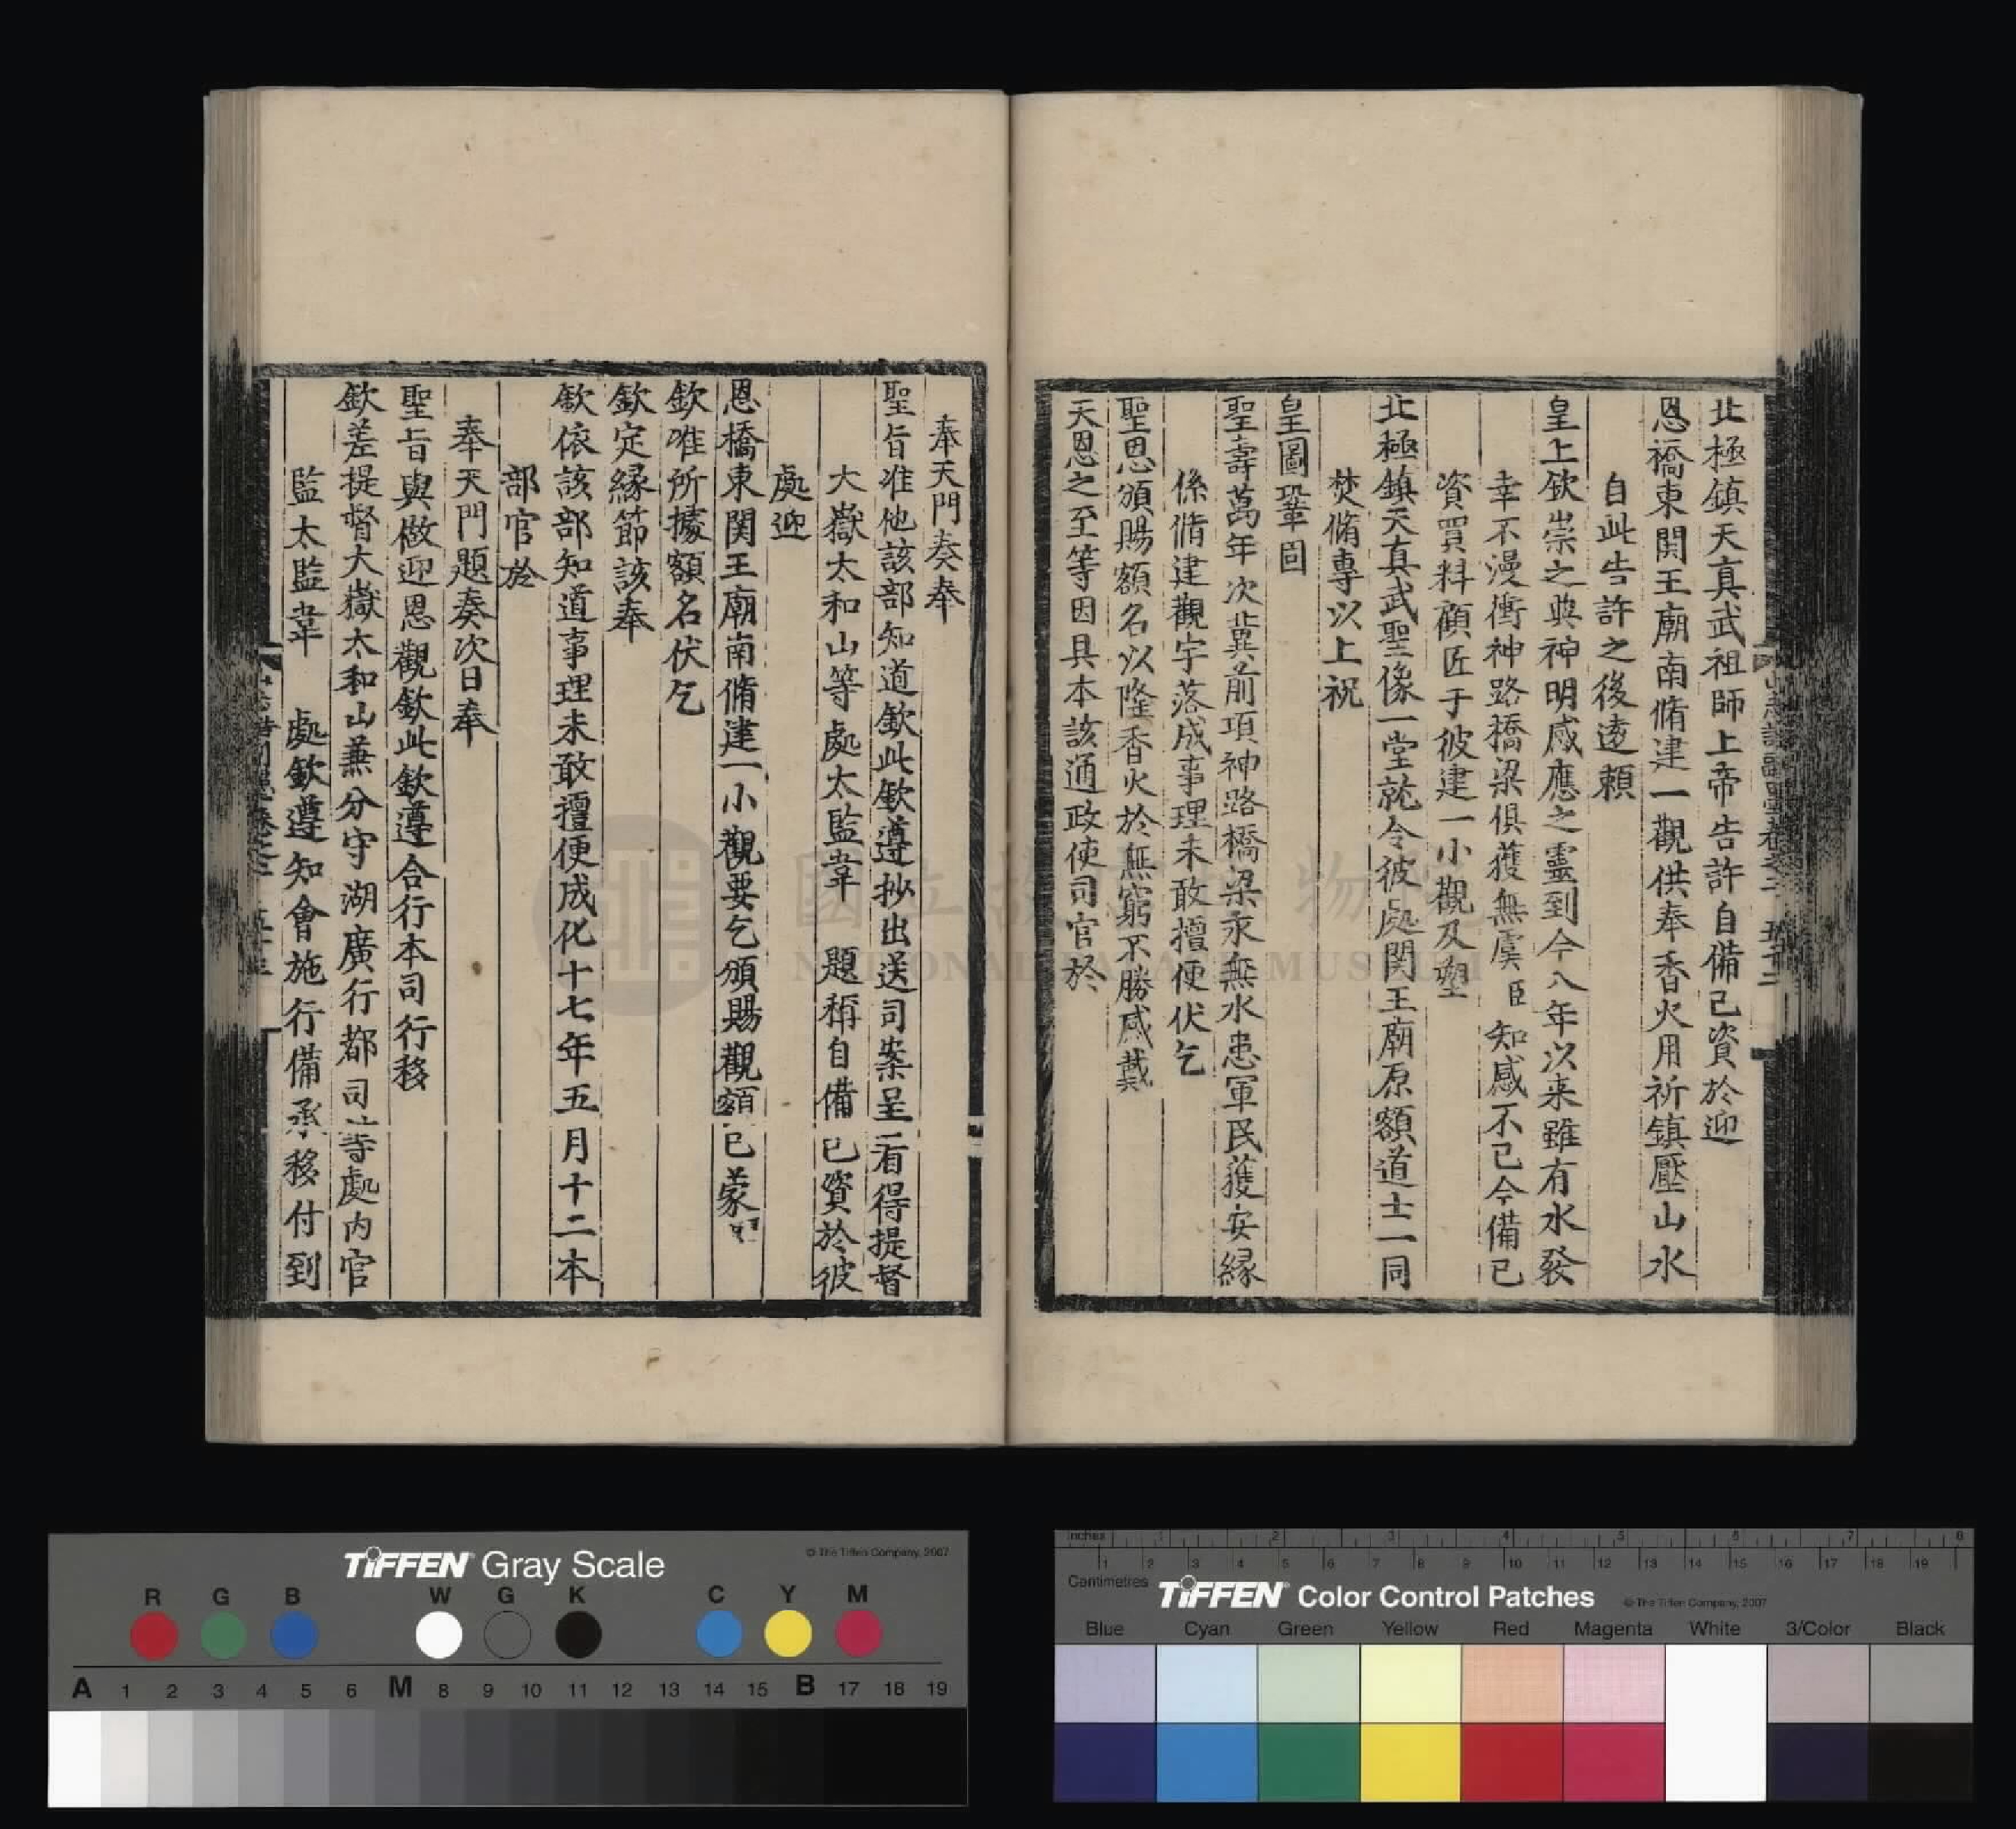 北極鎮天真武祖師上帝告許自備已資於迎
恩橋東関王廟南脩建一觀供奉香火用祈鎮壓山水
自此告許之後遠賴
皇上欽崇之典神明感應之靈到今八年以来雖有水發
幸不漫衝神路橋梁俱獲無虞臣知感不已今備已
資買料顧匠于彼建一小觀及塑
北極鎮天真武聖像一堂就令彼處関王廟原額道士一同
焚脩專以上祝
皇圖鞏固
聖壽萬年次冀前項神路橋梁永無水患軍民獲安緣
係脩建觀宇落成事理未敢擅便伏乞
聖恩頒賜額名以隆香火於無窮不勝感戴
天恩之至等因具本該通政使司官於
奉天門奏奉
聖旨准他該部知道欽此欽遵抄出送司案呈看得提督
大嶽太和山等處太監韋 題稱自備已資於彼
處迎
恩橋東関王廟南脩建一小觀要乞頒賜觀額已蒙
欽准所據額名伏乞
欽定緣節該奉
欽依該部知道事理未敢擅便成化十七年五月十二本
部官於
奉天門題奏次日奉
聖旨與做迎恩觀欽此欽遵合行本司行移
欽差提督大嶽太和山兼分守湖廣行都司等處内官
監太監韋 處欽遵知會施行備承移付到
國立故宮博物院
NATIONAL PALACE MUSEUM
TIFFEN Gray Scale
© The Tiffen Company, 2007
R G B W G K C Y M
A 1 2 3 4 5 6 M 8 9 10 11 12 13 14 15 B 17 18 19
Inches 1 2 3 4 5 6 7 8
1 2 3 4 5 6 7 8 9 10 11 12 13 14 15 16 17 18 19
Centimetres
TIFFEN Color Control Patches
© The Tiffen Company, 2007
Blue Cyan Green Yellow Red Magenta White 3/Color Black